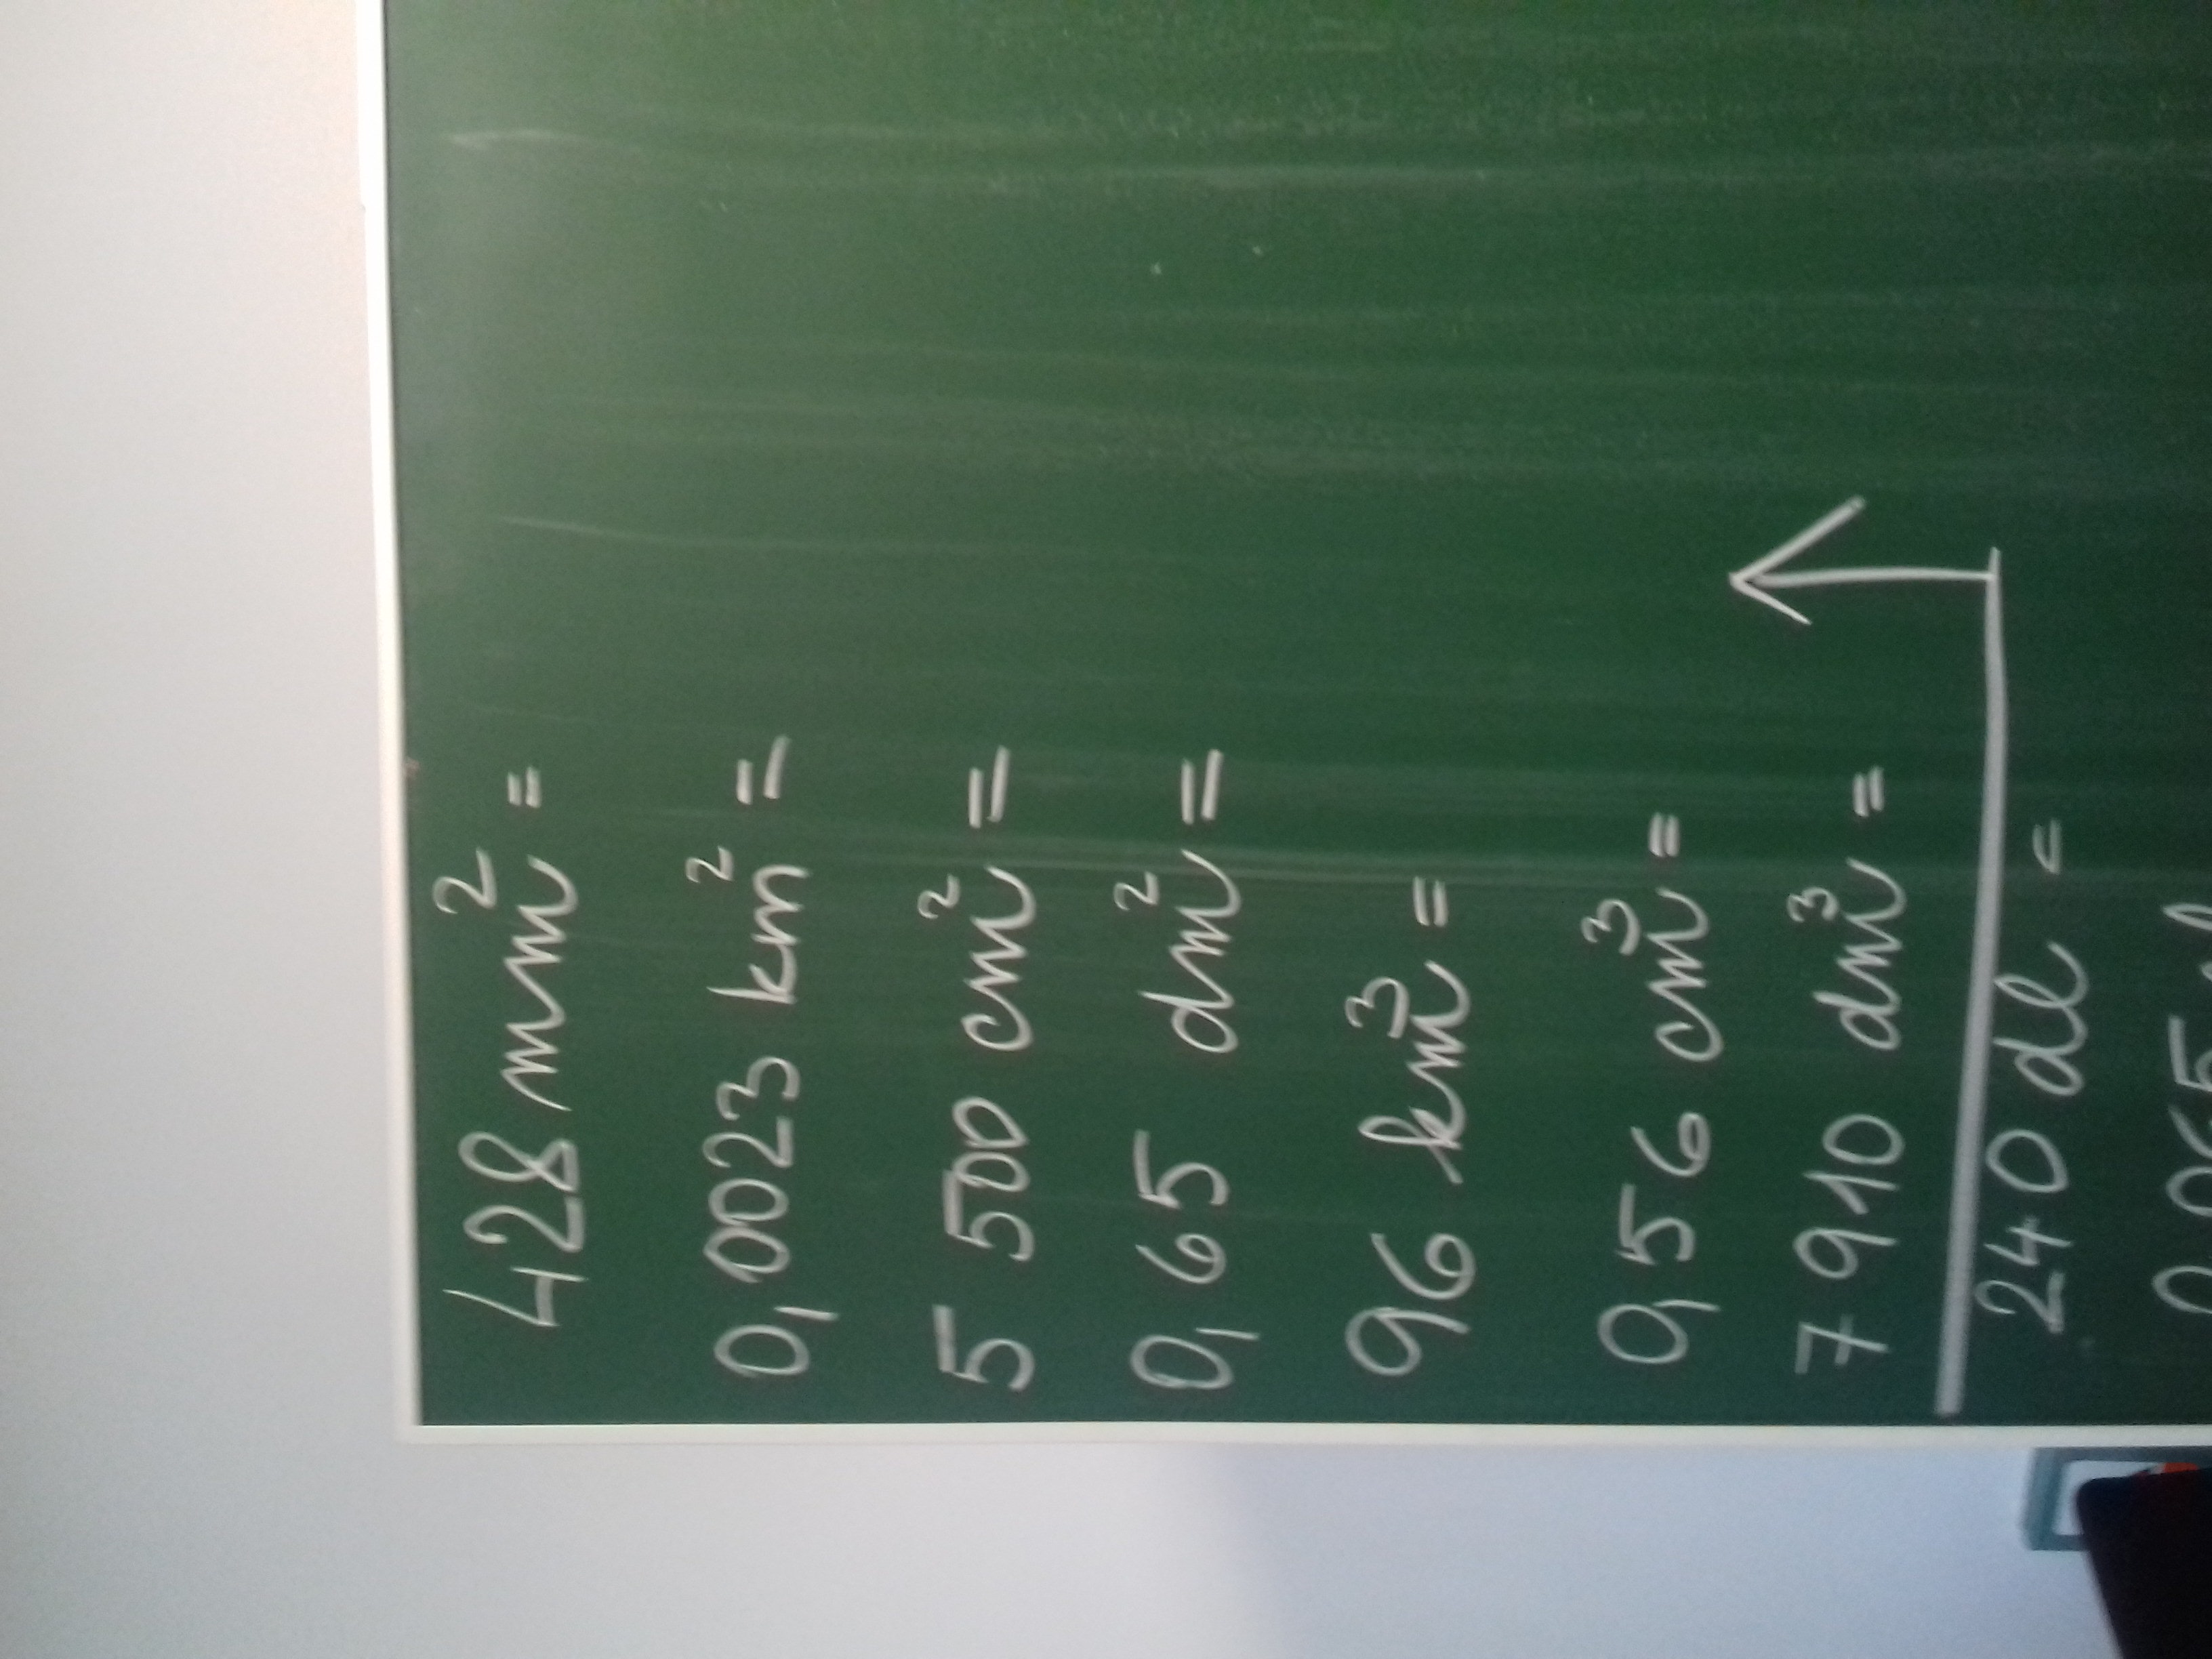 428 mm² =
0,0023 km² =
5 500 cm² =
0,65 dm² =
96 km³ =
0,56 cm³ =
7 910 dm³ =
240 dl =